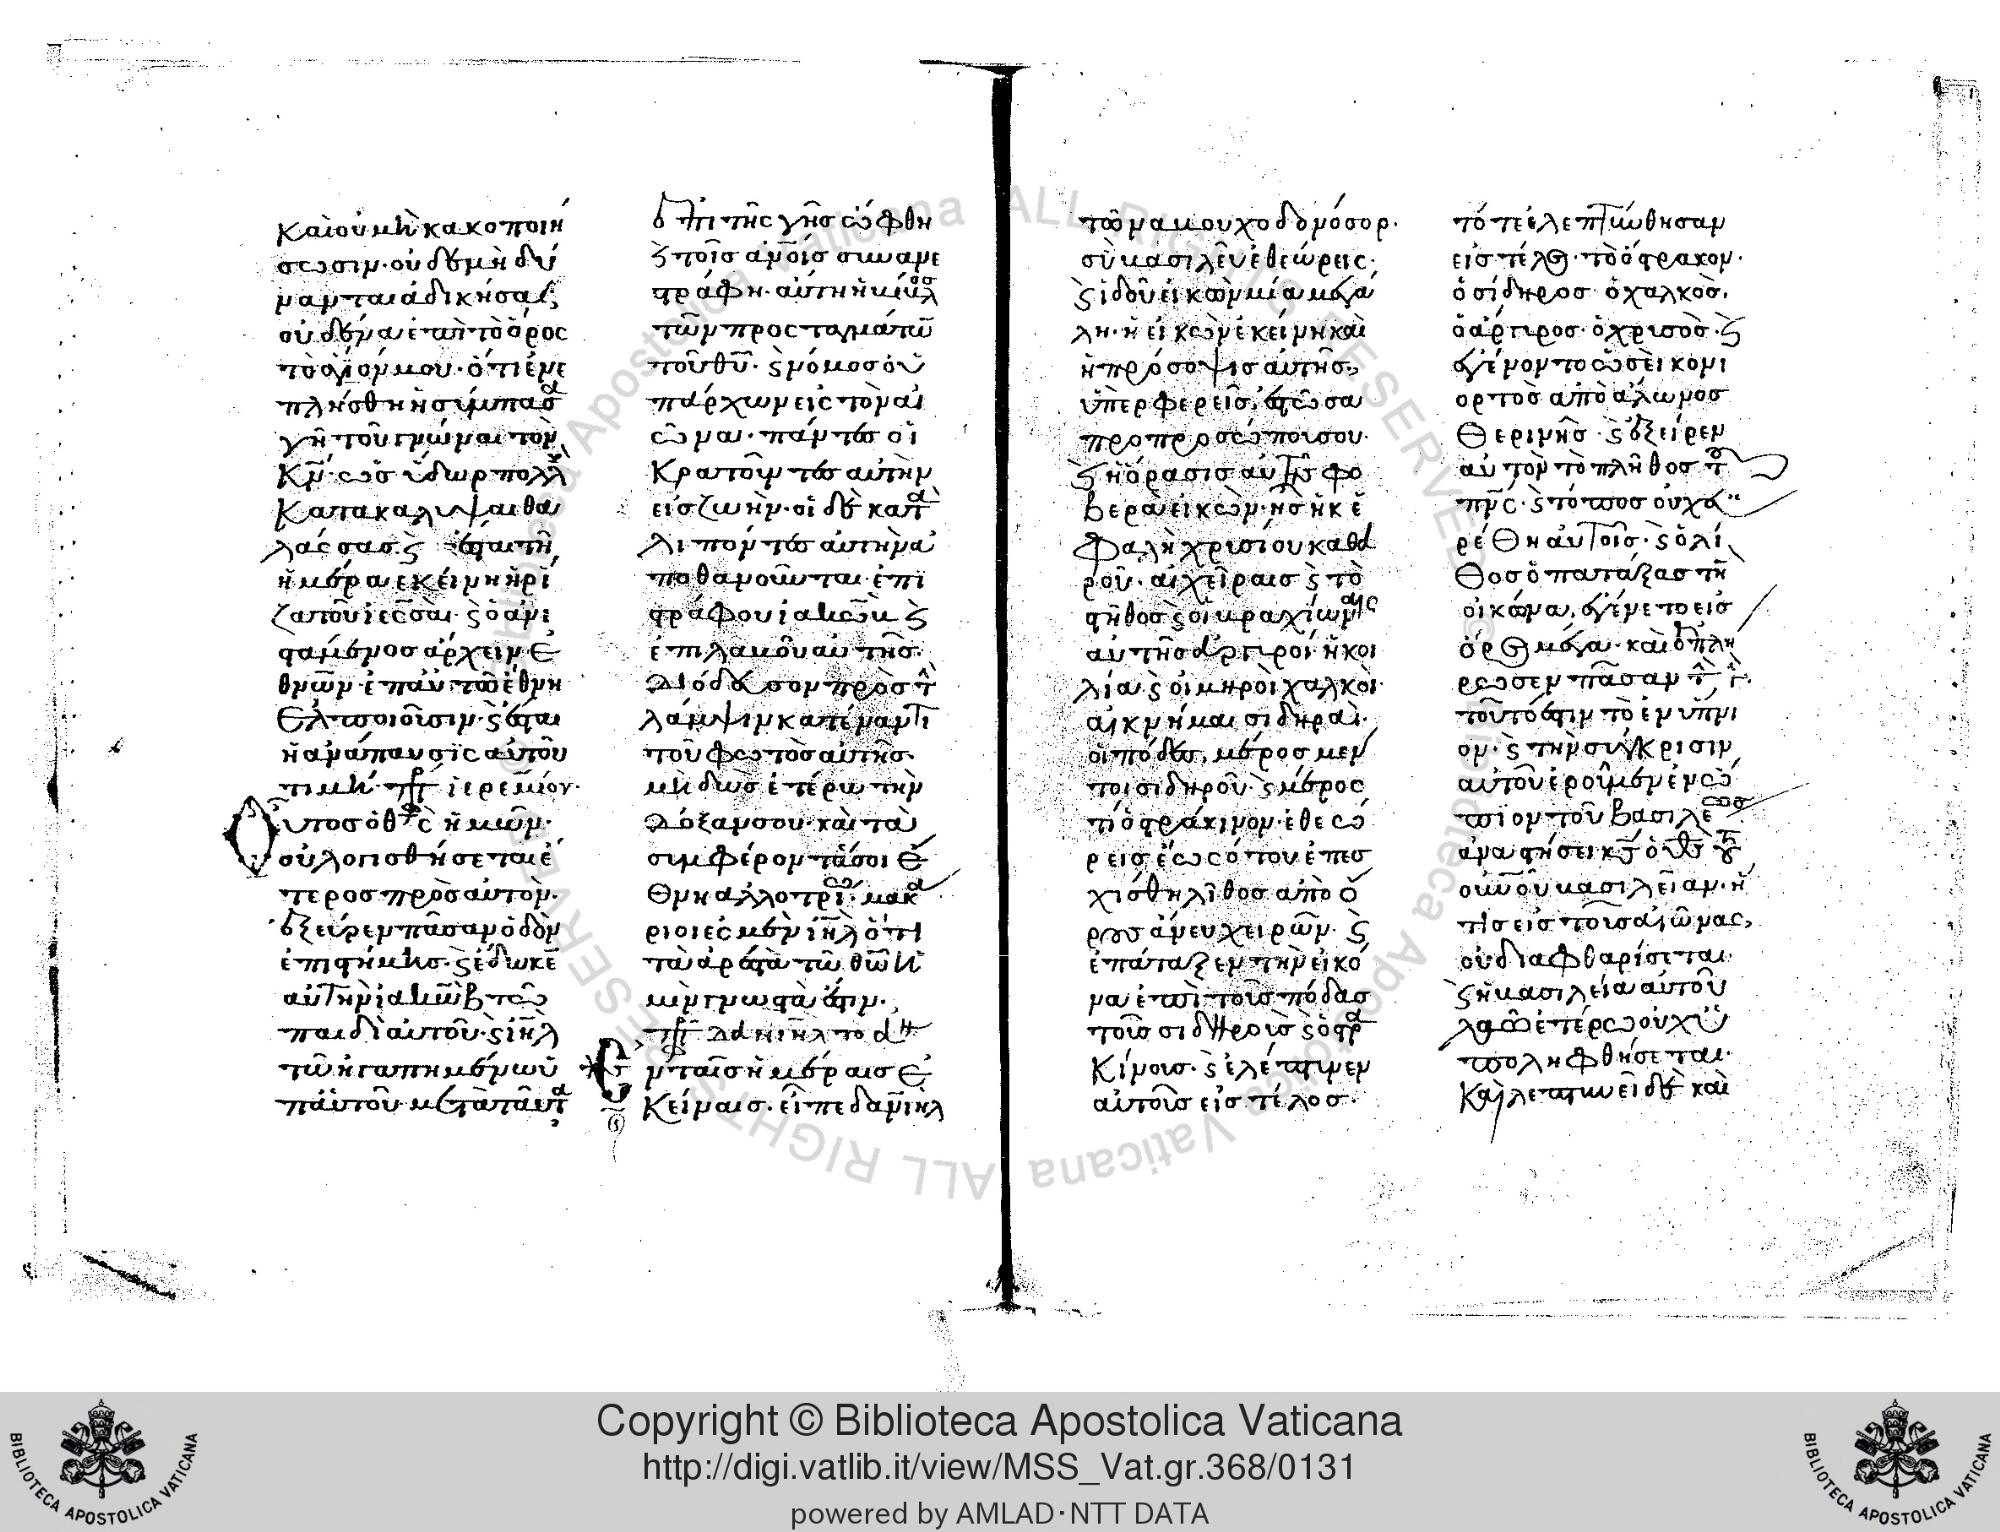 καὶ οὐ μὴ κακοποιή
σωσιν· οὐδὲ μὴ δύ
νανται ἀδικῆσαι
οὐδένα ἐπὶ τὸ ὄρος
τὸ ἅγιόν μου· ὅτι ἐνε
πλήσθη ἡ σύμπασα
γῆ τοῦ γνῶναι τὸν
κν̄· ὡς ὕδωρ πολὺ
κατακαλύψαι θα
λάσσας· καὶ ἔσται τῆ
ἡμέρα ἐκείνη ἡ ῥί
ζα τοῦ ἰεσσαὶ· καὶ ὁ ἀνι
στάμενος ἄρχειν ἐ
θνῶν· ἐπ' αὐτῶ ἔθνη
ἐλπιοῦσιν· καὶ ἔσται
ἡ ἀνάπαυσις αὐτοῦ
τιμή· προφ ἱερεμίου·
Οὗτος ὁ θς̄ ἡμῶν·
οὐ λογισθήσεται ἕ
τερος πρὸς αὐτὸν·
ἐξεῦρεν πᾶσαν ὁδὸν
ἐπιστήμης· καὶ ἔδωκεν
αὐτὴν ἰακὼβ τῶ
παιδὶ αὐτοῦ· καὶ ιη̄λ
τῶ ἠγαπημένω ὑ
π' αὐτοῦ· μετὰ ταῦτα
ἐπὶ τῆς γῆς ὤφθη
καὶ τοῖς ἀνοῖς συνανε
στράφη· αὕτη ἡ βίβλος
τῶν προσταγμάτων
τοῦ θῦ· καὶ νόμος ὁ ὑ
πάρχων εἰς τὸν αἰ
ῶνα· πάντες οἱ
κρατοῦντες αὐτὴν
εἰς ζωὴν· οἱ δὲ κατα
λιπόντες αὐτὴν ἀ
ποθανοῦνται· ἐπι
στράφου ἰακὼβ καὶ
ἐπιλαβοῦ αὐτῆς·
διόδευσον πρὸς τὴν
λάμψιν κατέναντι
τοῦ φωτὸς αὐτῆς·
μὴ δῶς ἑτέρω τὴν
δόξαν σου· καὶ τὰ
συμφέροντά σοι ἔ
θνη ἀλλοτρίω· μακά
ριοι ἐσμὲν ιη̄λ ὅτι
τὰ ἀρεστὰ τῶ θῶ ἡ
μῖν γνωστά ἐστιν·
προφ δανιηλ το α
Ἐν ταῖς ἡμέραις ἐ
κείναις· εἶπε δανιηλ
τῶ ναβουχοδονόσορ·
σὺ βασιλεῦ ἐθεώρεις·
καὶ ἰδοῦ εἰκὼν μία μεγά
λη· ἡ εἰκὼν ἐκείνη καὶ
ἡ πρόσοψις αὐτῆς
ὑπερφερεῖς, ἑστῶσα
πρὸ προσώπου σου·
καὶ ἡ ὅρασις αὐτῆς φο
βερὰ εἰκὼν· ἧς ἡ κε
φαλὴ χρυσίου καθα
ροῦ· αἱ χεῖραις καὶ τὸ
στῆθος καὶ οἱ βραχίωνες
αὐτῆς ἀργυροί· ἡ κοι
λία καὶ οἱ μηροὶ χαλκοὶ·
αἱ κνήμαι σιδηραῖ·
οἱ πόδες, μέρος μέν
τοι σιδηροῦ· καὶ μέρος
τι ὀστράκινον· ἐθεώ
ρεις ἕως ὅτου ἐπεσ
χίσθη λίθος ἀπὸ ὄ
ρους ἄνευ χειρῶν· καὶ
ἐπάταξεν τὴν εἰκό
να ἐπὶ τοὺς πόδας
τοὺς σιδηροῦς καὶ ὀστρα
κίνους· καὶ ἐλέπτυνεν
αὐτοὺς εἰς τέλος·
τότε ἐλεπτύνθησαν
εἰς τέλος· τὸ ὄστρακον·
ὁ σίδηρος ὁ χαλκὸς,
ὁ ἄργυρος· ὁ χρυσὸς· καὶ
ἐγένοντο ὡσεὶ κονι
ορτὸς ἀπὸ ἅλωνος
θερινῆς· καὶ ἐξεῖρεν
αὐτὸν τὸ πλῆθος τοῦ
πνς̄· καὶ τόπος οὐχ εὑ
ρέθη αὐτοῖς· καὶ ὁ λί
θος ὁ πατάξας τὴν
οἰκόνα, ἐγένετο εἰς
ὄρος μέγα· καὶ ἐπλή
ρωσεν πᾶσαν τὴν γῆν·
τοῦτό ἐστιν τὸ ἐνύπνι
ον· καὶ τὴν σύγκρισιν
αὐτοῦ ἐροῦμεν ἐνώ
πιον τοῦ βασιλέως
ἀναστήσει κς̄ ὁ θς̄ τοῦ
οὐνοῦ βασιλείαν· ἥ
τις εἰς τοὺς αἰῶνας,
οὐ διαφθαρίσεται·
καὶ ἡ βασιλεία αὐτοῦ
λαῶ ἑτέρω οὐχ ὑ
πολειφθήσεται·
καὶ λεπτυνεῖ δὲ καὶ
Copyright © Biblioteca Apostolica Vaticana
http://digi.vatlib.it/view/MSS_Vat.gr.368/0131
powered by AMLAD·NTT DATA
BIBLIOTECA APOSTOLICA VATICANA
BIBLIOTECA APOSTOLICA VATICANA